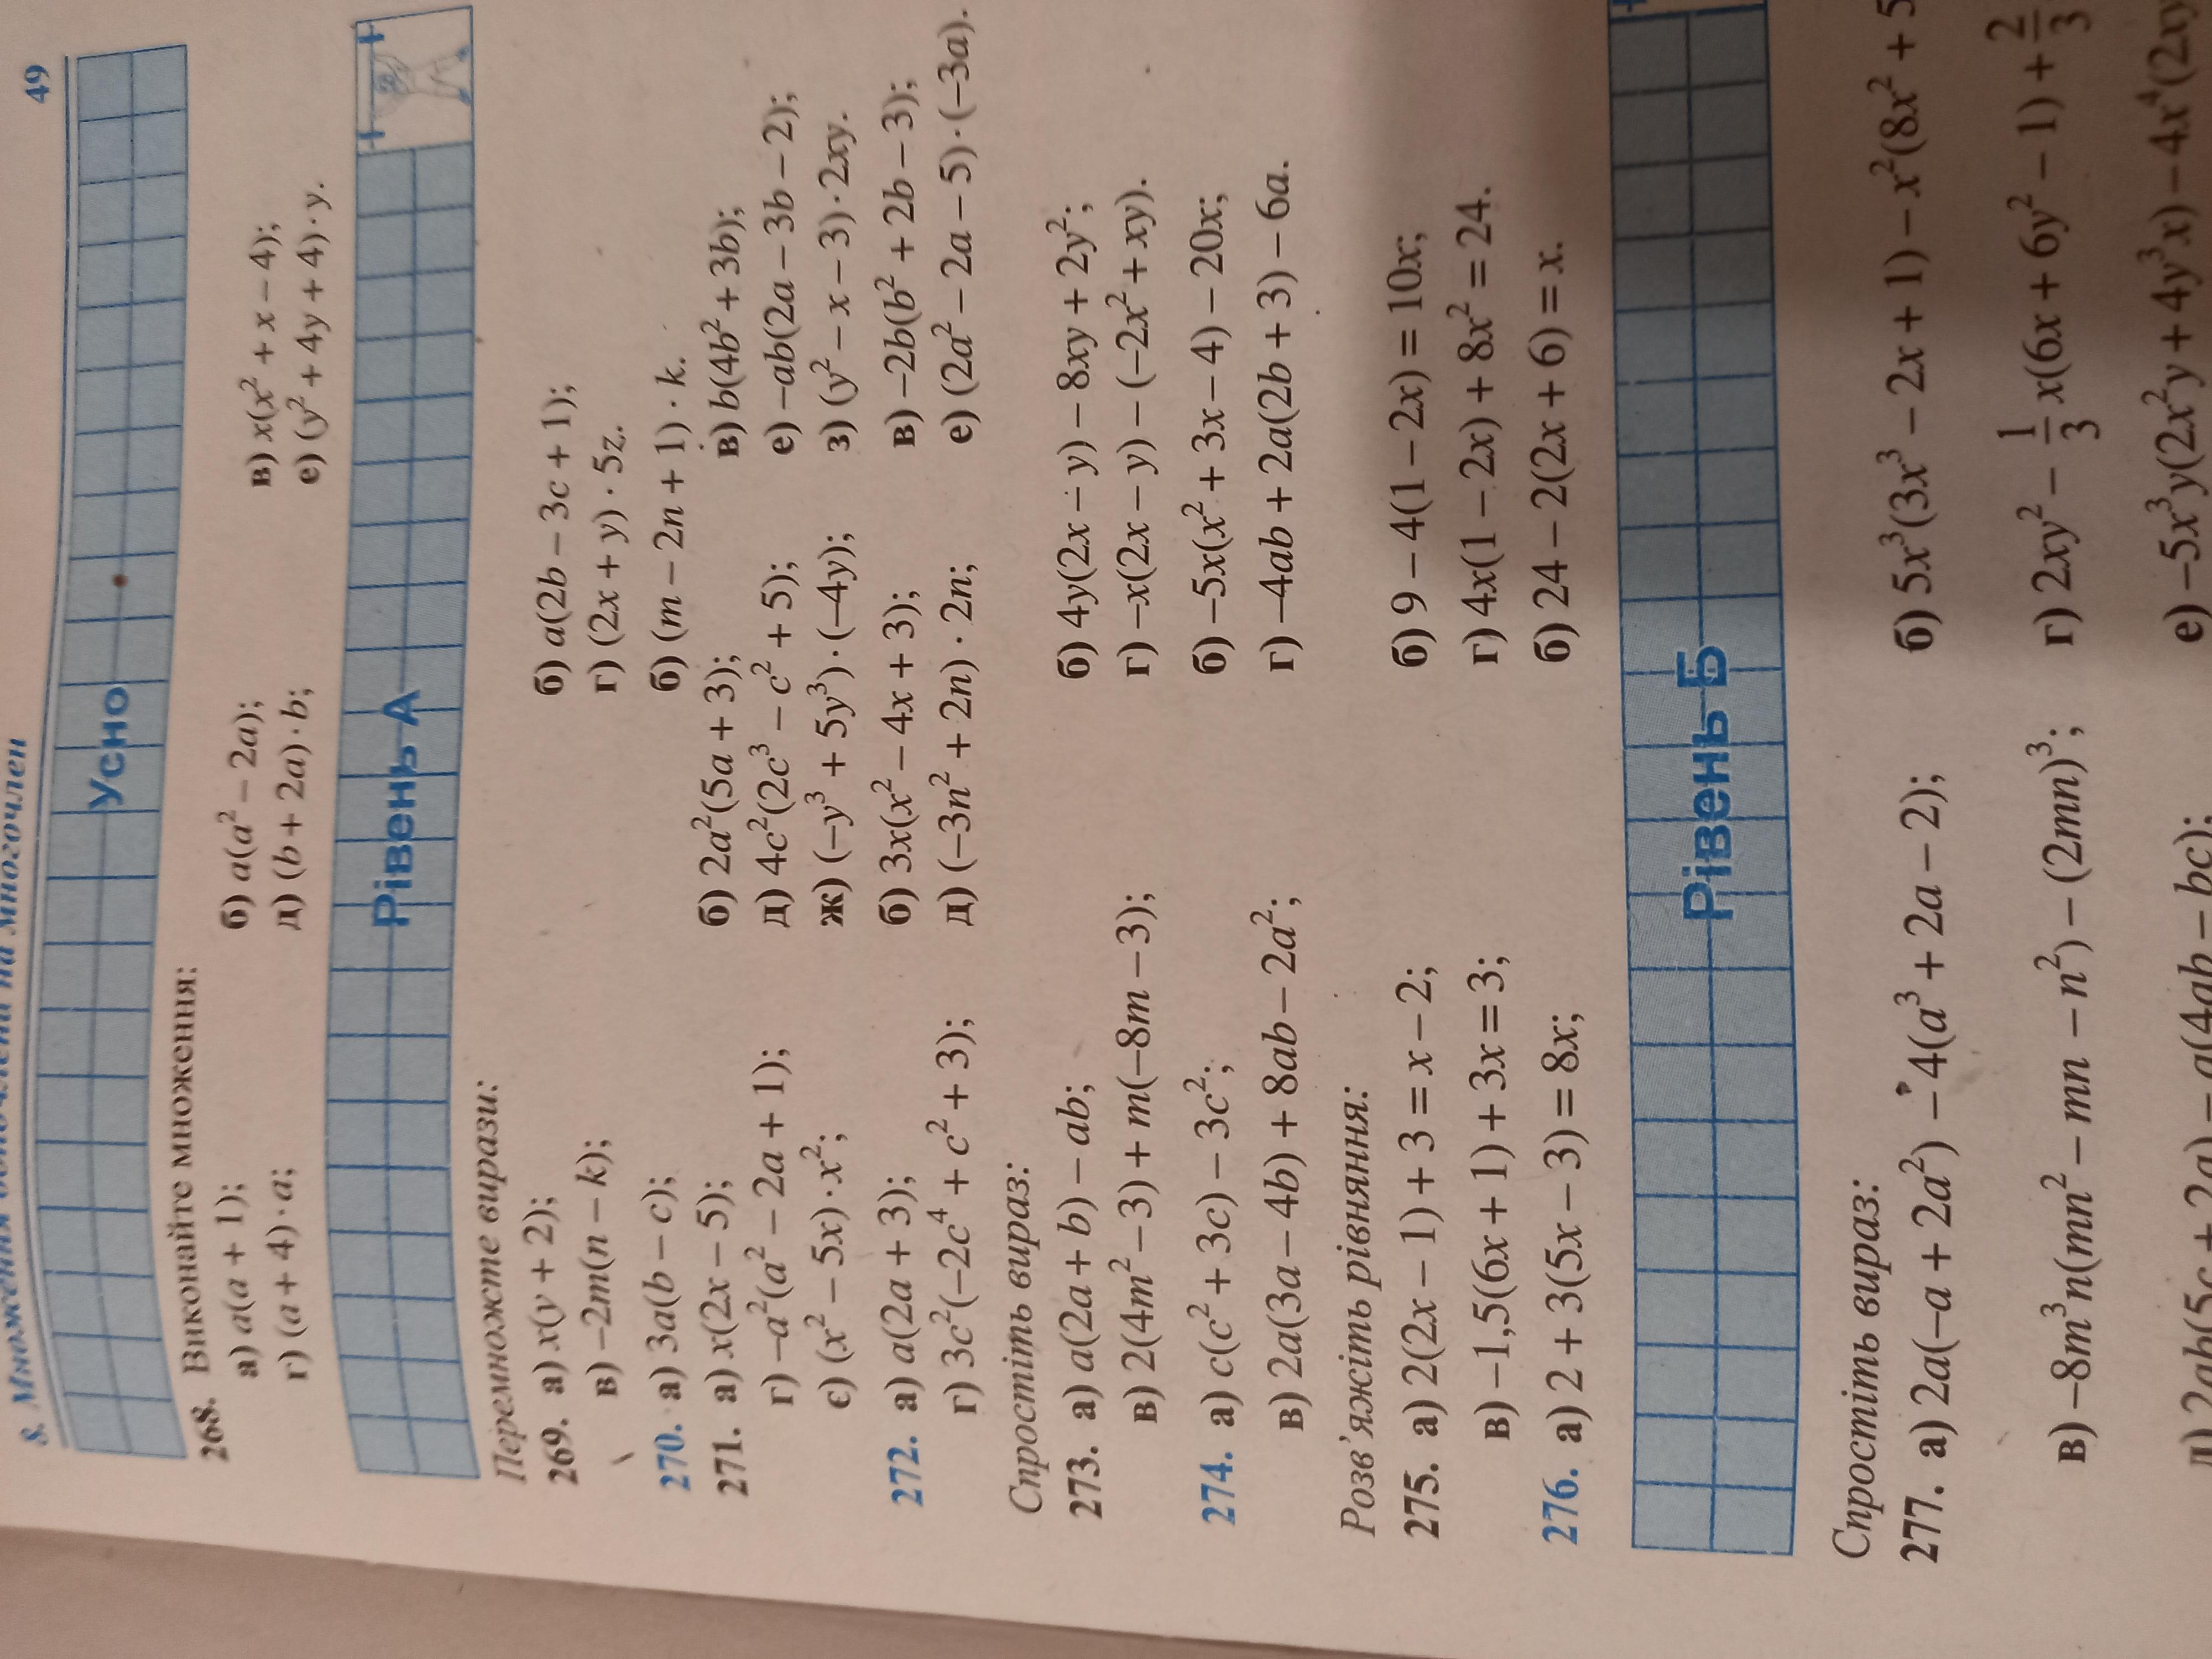 8. Множення одночлена на многочлен 49
Усно
268. Виконайте множення:
а) a(a + 1); б) a(a² − 2a); в) x(x² + x − 4);
г) (a + 4) · a; д) (b + 2a) · b; е) (y² + 4y + 4) · y.
Рівень А
Перемножте вирази:
269. а) x(y + 2); б) a(2b − 3c + 1);
в) −2m(n − k); г) (2x + y) · 5z.
270. а) 3a(b − c); б) (m − 2n + 1) · k.
271. а) x(2x − 5); б) 2a²(5a + 3); в) b(4b² + 3b);
г) −a²(a² − 2a + 1); д) 4c²(2c³ − c² + 5); е) −ab(2a − 3b − 2);
є) (x² − 5x) · x²; ж) (−y³ + 5y³) · (−4y); з) (y² − x − 3) · 2xy.
272. а) a(2a + 3); б) 3x(x² − 4x + 3); в) −2b(b² + 2b − 3);
г) 3c²(−2c⁴ + c² + 3); д) (−3n² + 2n) · 2n; е) (2a² − 2a − 5) · (−3a).
Спростіть вираз:
273. а) a(2a + b) − ab; б) 4y(2x − y) − 8xy + 2y²;
в) 2(4m² − 3) + m(−8m − 3); г) −x(2x − y) − (−2x² + xy).
274. а) c(c² + 3c) − 3c²; б) −5x(x² + 3x − 4) − 20x;
в) 2a(3a − 4b) + 8ab − 2a²; г) −4ab + 2a(2b + 3) − 6a.
Розв’яжіть рівняння:
275. а) 2(2x − 1) + 3 = x − 2; б) 9 − 4(1 − 2x) = 10x;
в) −1,5(6x + 1) + 3x = 3; г) 4x(1 − 2x) + 8x² = 24.
276. а) 2 + 3(5x − 3) = 8x; б) 24 − 2(2x + 6) = x.
Рівень Б
Спростіть вираз:
277. а) 2a(−a + 2a²) − 4(a³ + 2a − 2); б) 5x³(3x³ − 2x + 1) − x²(8x² + 5
в) −8m³n(mn² − mn − n²) − (2mn)³; г) 2xy² − 1/3 x(6x + 6y² − 1) + 2/3
д) 2ab(5c + 2a) − a(4ab − bc); е) −5x³y(2x²y + 4y³x) − 4x⁴(2xy